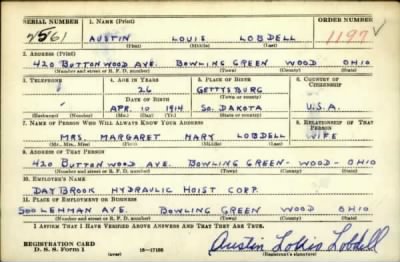 SERIAL NUMBER 1. NAME (Print) ORDER NUMBER
2561 AUSTIN LOUIS LOBDELL 1197
(First) (Middle) (Last)
2. ADDRESS (Print)
420 BUTTONWOOD AVE. BOWLING GREEN WOOD OHIO
(Number and street or R. F. D. number) (Town) (County) (State)
3. TELEPHONE 4. AGE IN YEARS 5. PLACE OF BIRTH 6. COUNTRY OF CITIZENSHIP
26 GETTYSBURG
DATE OF BIRTH (Town or county)
APR. 10 1914 SO. DAKOTA U.S.A.
(Exchange) (Number) (Mo.) (Day) (Yr.) (State or country)
7. NAME OF PERSON WHO WILL ALWAYS KNOW YOUR ADDRESS 8. RELATIONSHIP OF THAT PERSON
MRS. MARGARET MARY LOBDELL WIFE
(Mr., Mrs., Miss) (First) (Middle) (Last)
9. ADDRESS OF THAT PERSON
420 BUTTONWOOD AVE. BOWLING GREEN - WOOD - OHIO
(Number and street or R. F. D. number) (Town) (County) (State)
10. EMPLOYER'S NAME
DAYBROOK HYDRAULIC HOIST CORP.
11. PLACE OF EMPLOYMENT OR BUSINESS
500 LEHMAN AVE. BOWLING GREEN WOOD OHIO
(Number and street or R. F. D. number) (Town) (County) (State)
I AFFIRM THAT I HAVE VERIFIED ABOVE ANSWERS AND THAT THEY ARE TRUE.
REGISTRATION CARD
D. S. S. Form 1 (over) 16-17105 Austin Louis Lobdell
(Registrant's signature)